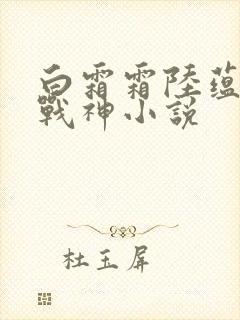 白霜霜陸蘊
戰神小說
杜玉屏